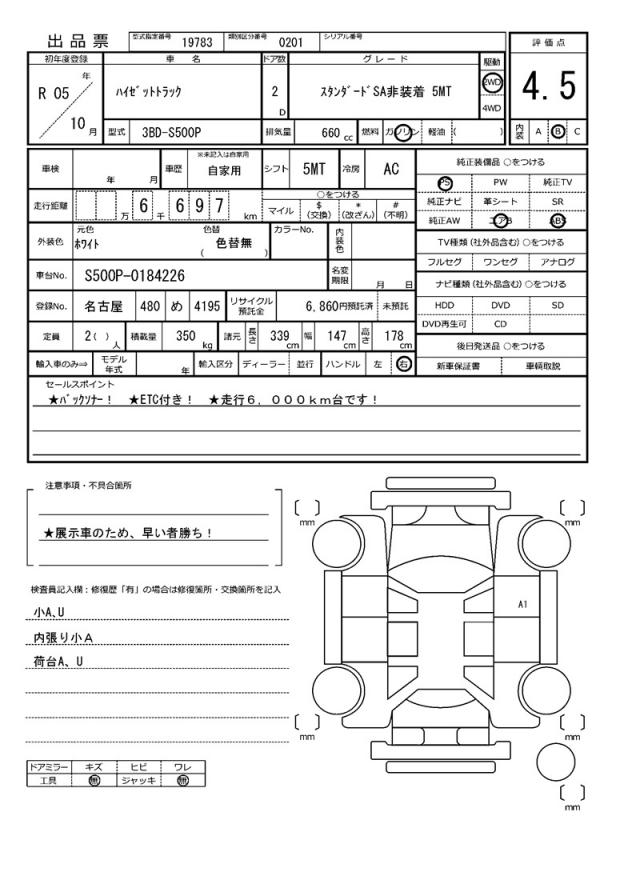 出品票 型式指定番号 19783 類別区分番号 0201 シリアル番号
初年度登録 車名 ドア数 グレード 駆動 評価点
R 05 年 10 月 ハイゼットトラック 2 D スタンダードSA非装着 5MT 2WD 4WD 4.5
型式 3BD-S500P 排気量 660 cc 燃料 ガソリン 軽油 ( ) 内装 A B C
車検 年 月 車歴 ※未記入は自家用 自家用 シフト 5MT 冷房 AC 純正装備品 ○をつける
PS PW 純正TV
走行距離 万 6 千 6 9 7 km ○をつける 純正ナビ 革シート SR
マイル $ (交換) * (改ざん) # (不明) 純正AW エアB ABS
外装色 元色 ホワイト 色替 色替無 ( ) カラーNo. 内装色 TV種類 (社外品含む) ○をつける
フルセグ ワンセグ アナログ
車台No. S500P-0184226 名変期限 月 日 ナビ種類 (社外品含む) ○をつける
登録No. 名古屋 480 め 4195 リサイクル預託金 6,860円預託済 未預託 HDD DVD SD
DVD再生可 CD
定員 2( ) 人 積載量 350 kg 諸元 長さ 339 cm 幅 147 cm 高さ 178 cm 後日発送品 ○をつける
輸入車のみ⇒ モデル年式 年 輸入区分 ディーラー 並行 ハンドル 左 右 新車保証書 車輌取説
セールスポイント
★バックソナー! ★ETC付き! ★走行6,000km台です!
注意事項・不具合箇所
★展示車のため、早い者勝ち!
検査員記入欄:修復歴「有」の場合は修復箇所・交換箇所を記入
小A、U
内張り小A
荷台A、U
ドアミラー キズ ヒビ ワレ
工具 無 ジャッキ 無
mm
mm
A1
mm
mm
mm